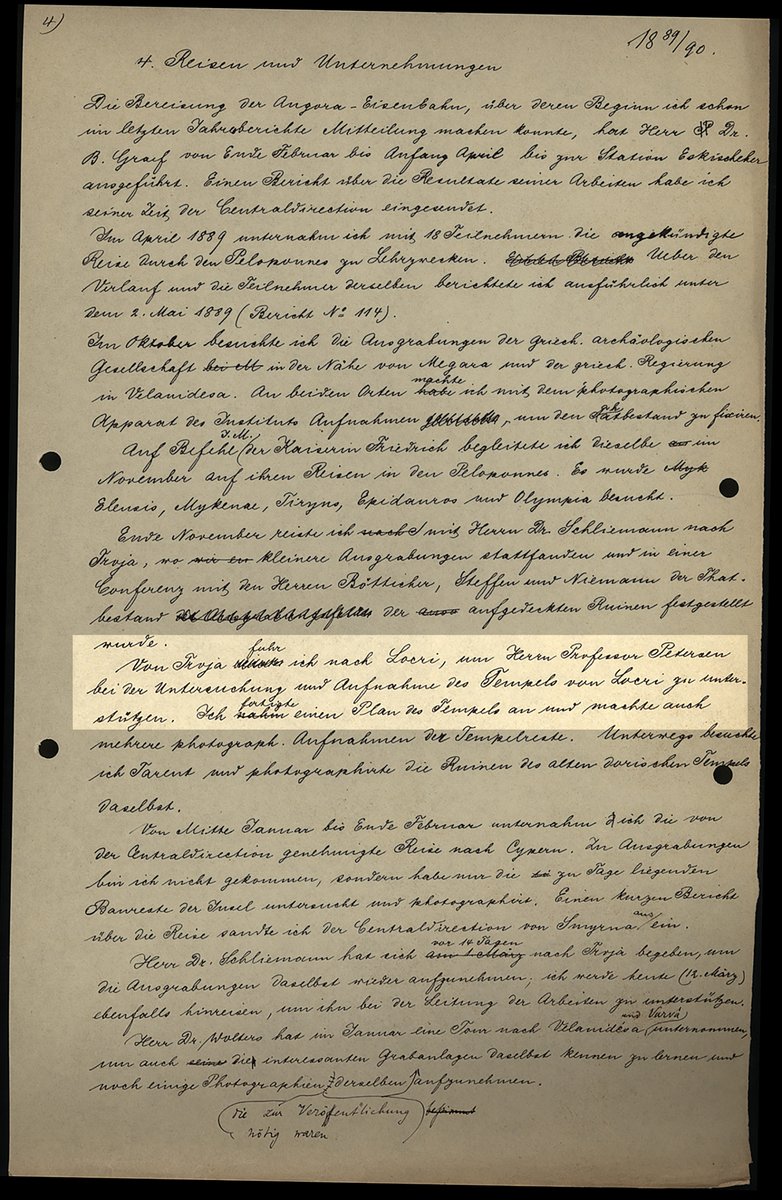 4)
18 89/90.
4. Reisen und Unternehmungen
Die Bereisung der Angora-Eisenbahn, über deren Beginn ich schon
im letzten Jahresberichte Mitteilung machen konnte, hat Herr Dr.
B. Graef von Ende Februar bis Anfang April bis zur Station Eskischeher
ausgeführt. Einen Bericht über die Resultate seiner Arbeiten habe ich
seiner Zeit der Centraldirection eingesendet.
Im April 1889 unternahm ich mit 18 Teilnehmern die angekündigte
Reise durch den Peloponnes zu Lehrzwecken. Ueber den
Verlauf und die Teilnehmer derselben berichtete ich ausführlich unter
dem 2. Mai 1889 (Bericht No 114).
Im Oktober besuchte ich die Ausgrabungen der griech. archäologischen
Gesellschaft bei M in der Nähe von Megara und der griech. Regierung
in Velanidesa. An beiden Orten habe machte ich mit dem photographischen
Apparat des Instituts Aufnahmen, um den Thatbestand zu fixiren.
Auf Befehl I.M. der Kaiserin Friedrich begleitete ich dieselbe im
November auf ihren Reisen in den Peloponnes. Es wurde Myk
Eleusis, Mykenae, Tiryns, Epidauros und Olympia besucht.
Ende November reiste ich nach mit Herrn Dr. Schliemann nach
Troja, wo wir en kleinere Ausgrabungen stattfanden und in einer
Conferenz mit den Herren Bötticher, Steffen und Niemann der That-
bestand der ausg aufgedeckten Ruinen festgestellt
wurde.
Von Troja fuhr ich nach Locri, um Herrn Professor Petersen
bei der Untersuchung und Aufnahme des Tempels von Locri zu unter-
stützen. Ich nahm fertigte einen Plan des Tempels an und machte auch
mehrere photograph. Aufnahmen der Tempelreste. Unterwegs besuchte
ich Tarent und photographirte die Ruinen des alten dorischen Tempels
daselbst.
Von Mitte Januar bis Ende Februar unternahm ich die von
der Centraldirection genehmigte Reise nach Cypern. Zu Ausgrabungen
bin ich nicht gekommen, sondern habe nur die zu Tage liegenden
Baureste der Insel untersucht und photographirt. Einen kurzen Bericht
über die Reise sandte ich der Centraldirection von Smyrna aus ein.
Herr Dr. Schliemann hat sich am 1 März vor 14 Tagen nach Troja begeben, um
die Ausgrabungen daselbst wieder aufzunehmen; ich werde heute (12. März)
ebenfalls hinreisen, um ihn bei der Leitung der Arbeiten zu unterstützen.
Herr Dr. Wolters hat im Januar eine Tour nach Velanidesa und Varvá unternommen,
um auch seine die interessanten Grabanlagen daselbst kennen zu lernen und
noch einige Photographien derselben aufzunehmen.
die zur Veröffentlichung bestimmt
nötig waren